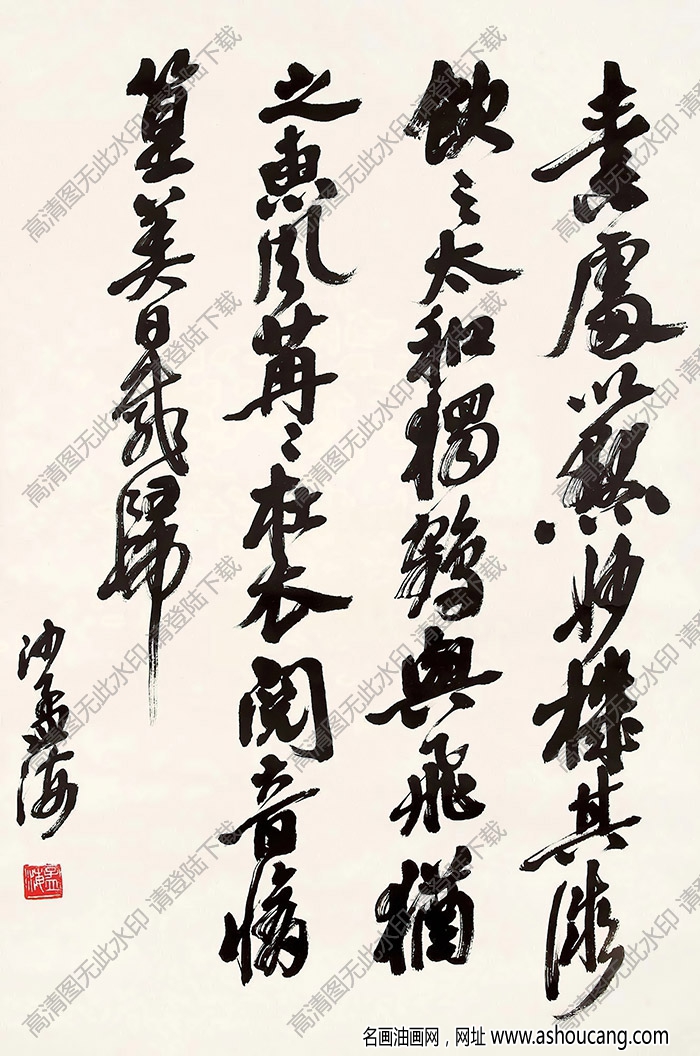 素處以默妙機其微
飲之太和獨鶴與飛猶
之惠風苒〻在衣閱音脩
篁美曰載歸
沙孟海
孟海
高清图无此水印 请登陆下载
名画油画网，网址 www.ashoucang.com